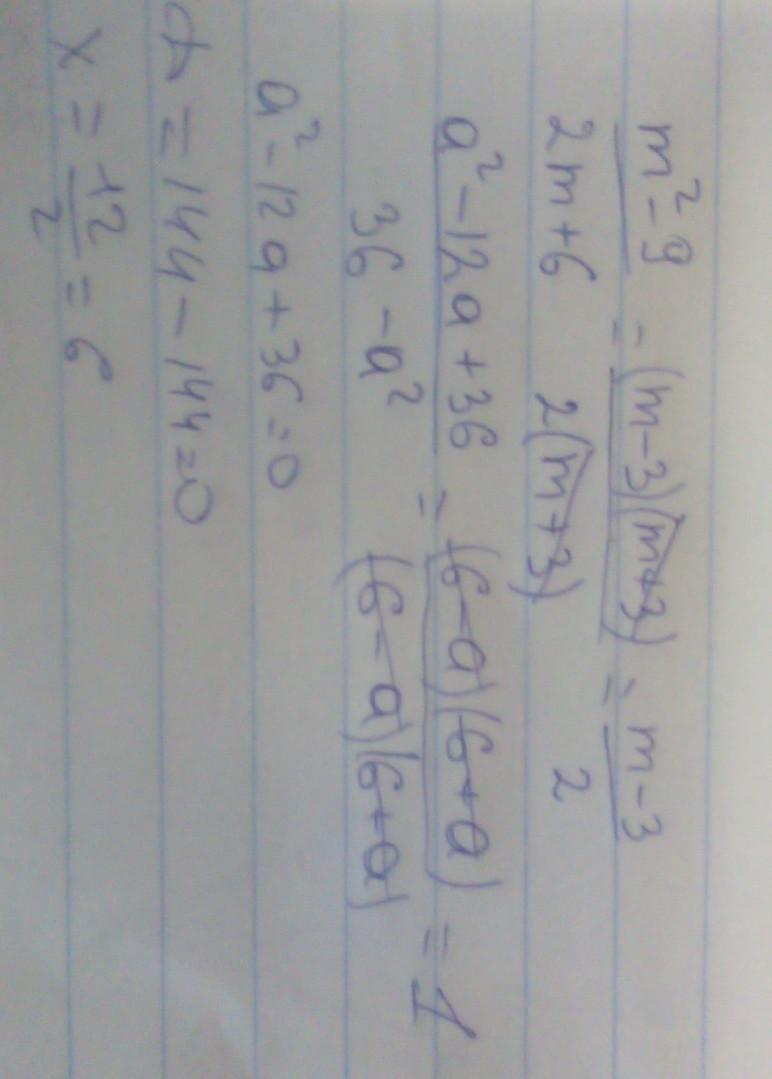 m² - 9 / 2m + 6 = (m-3)(m+3) / 2(m+3) = m-3 / 2
a² - 12a + 36 / 36 - a² = (6-a)(6+a) / (6-a)(6+a) = 1
a² - 12a + 36 = 0
d = 144 - 144 = 0
x = 12 / 2 = 6